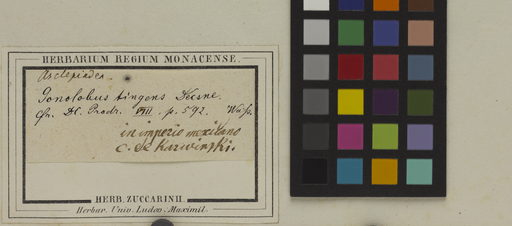 HERBARIUM REGIUM MONACENSE.
Asclepiadea.
Gonolobus tingens Decsne.
Cfr. DC. Prodr. VIII. p. 592.
in imperio mexicano
C. de Karwinski.
HERB. ZUCCARINII.
Herbar. Univ. Ludov. Maximil.